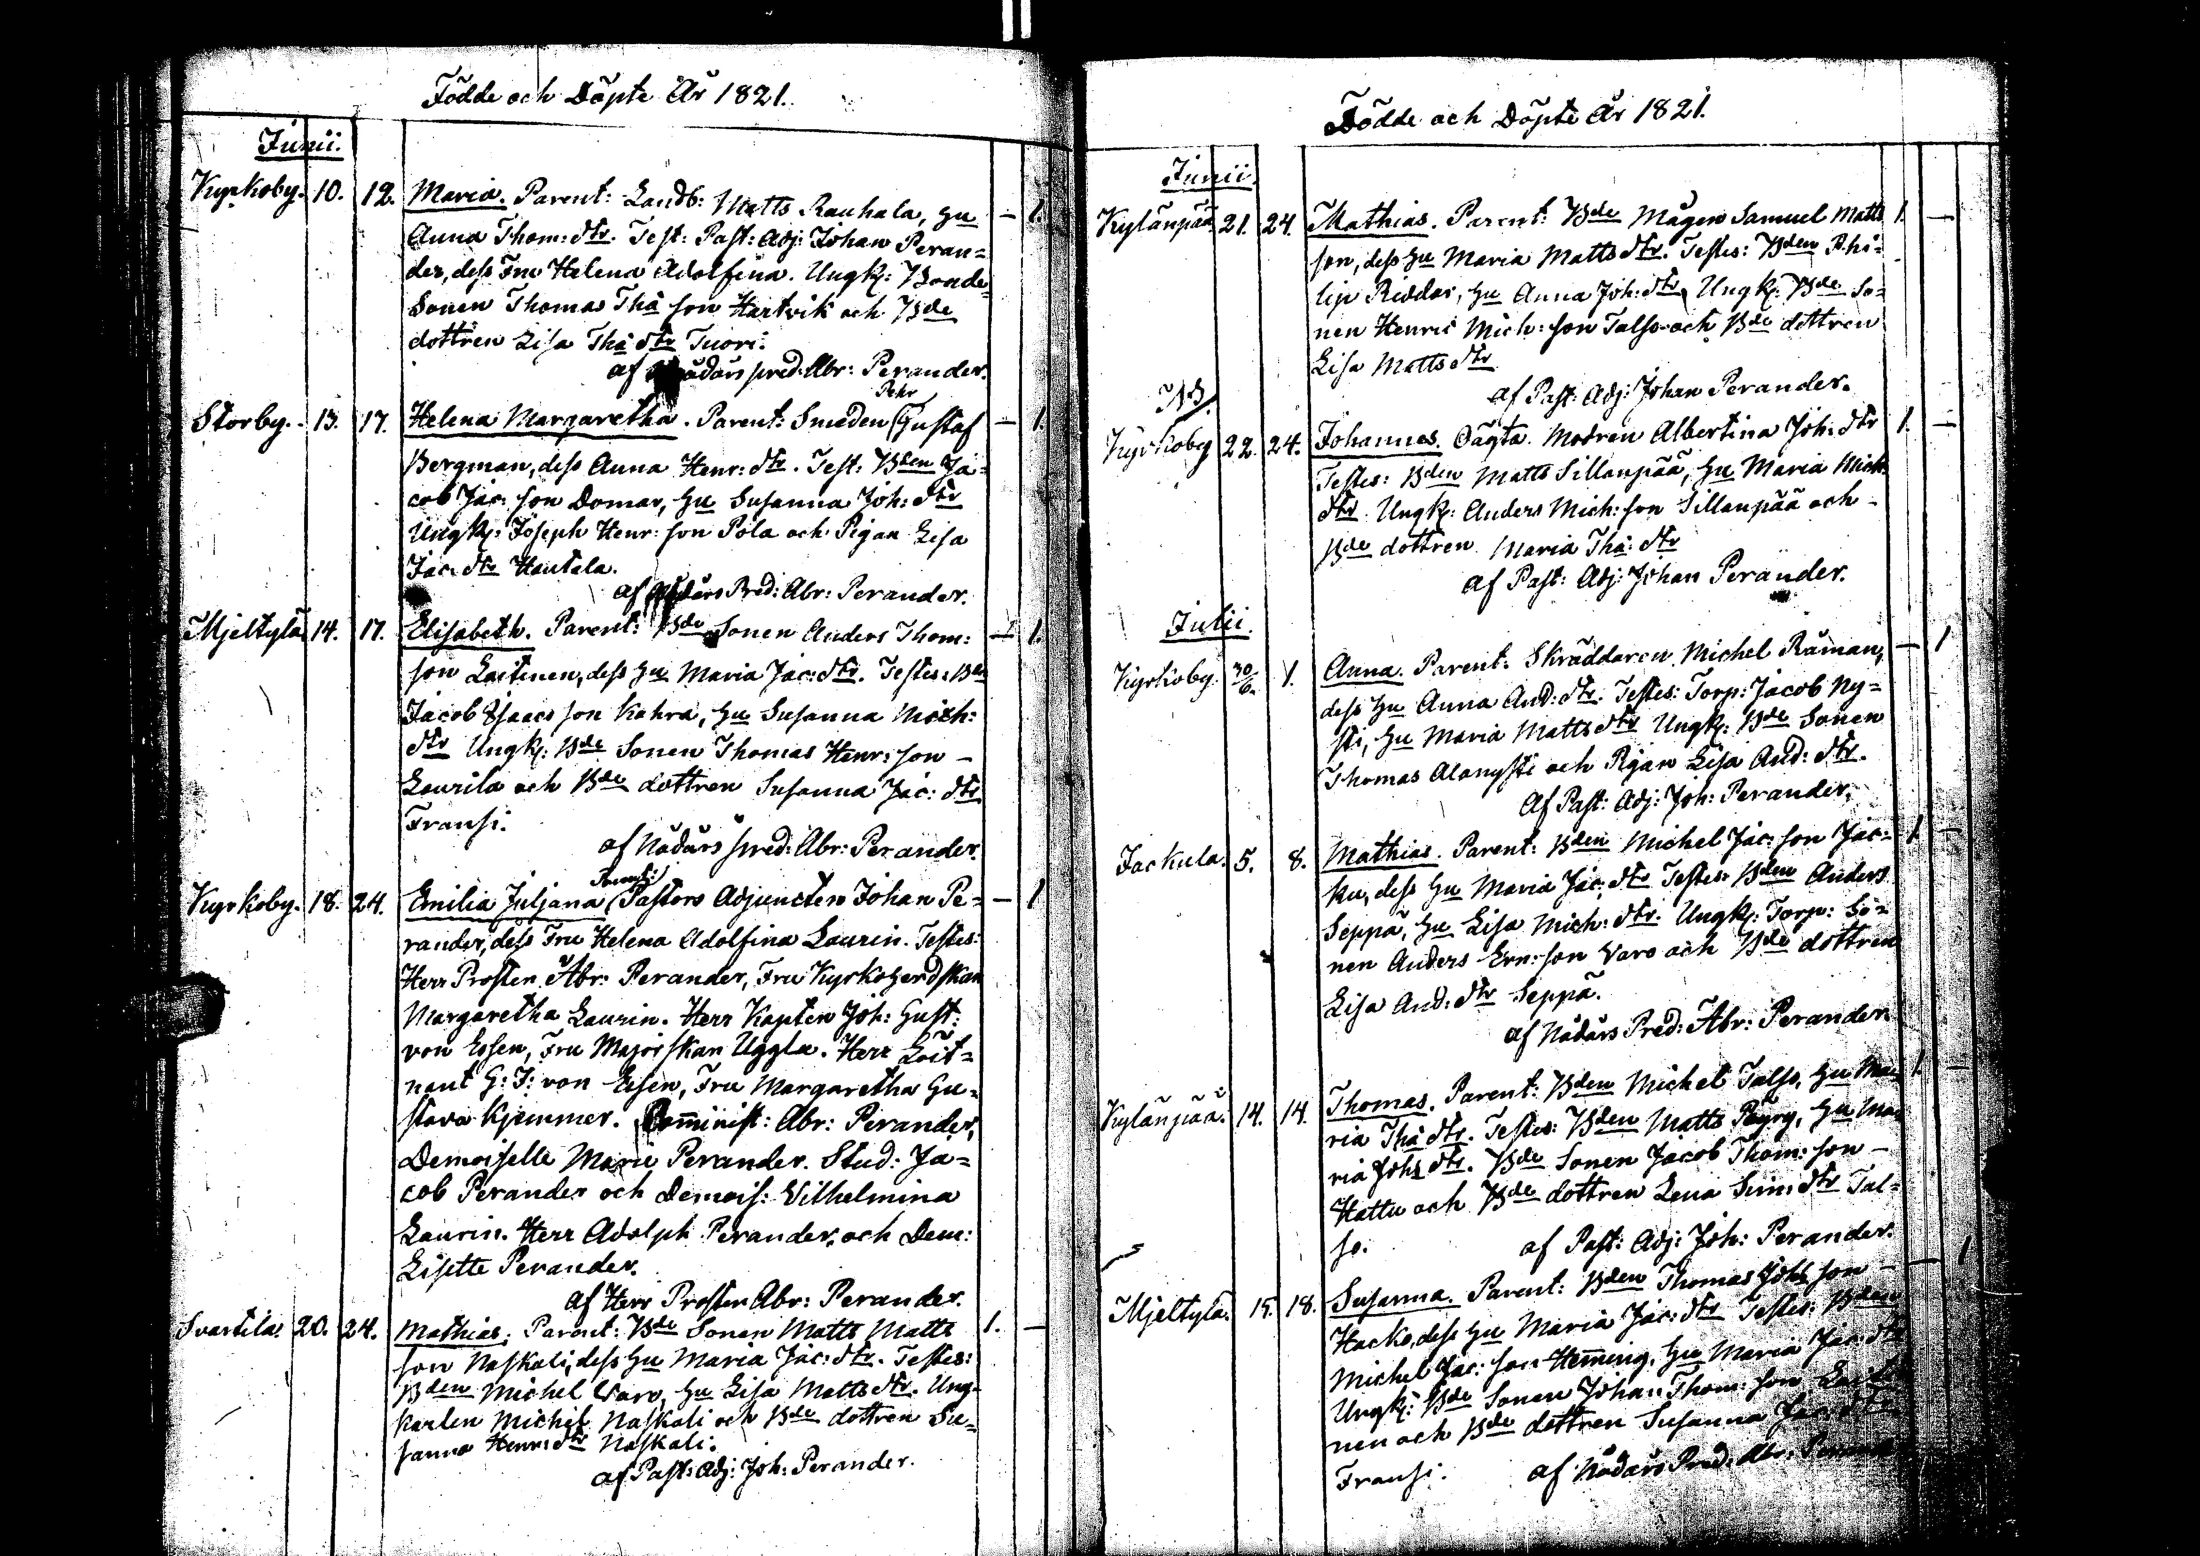 Födde och Döpte År 1821.
Junii.
Kyrkoby. 10. 12. Maria. Parent: Landb: Matts Rauhala, Hu — 1.
Anna Thom: dtr. Test: Past: Adj: Johan Peran=
der, dess Fru Helena Adolfina. Ungk: Bonde
Sonen Thomas Tho: son Hartvik och Bde
dottren Lisa Tho: dtr Tuori.
af Nådårs pred: Abr: Perander.
Pehr
Storby. 13. 17. Helena Margaretha. Parent: Smeden (Gustaf — 1.
Bergman, dess Anna Henr: dtr. Test: Bden Ja=
cob Jac: son Domar, Hu Susanna Joh: dtr
Ungk: Joseph Henr: son Pola och Pigan Lisa
Jac: dtr Hantala.
af Nådårs Pred: Abr: Perander.
Mjeltylä 14. 17. Elisabeth. Parent: Bde Sonen Anders Thom: — 1.
son Laitinen, dess Hu Maria Jac: dtr. Testes: Bden
Jacob Isaacs son Kahra, Hu Susanna Mich:
dtr Ungk: Bde Sonen Thomas Henr: son —
Laurila och Bde dottren Susanna Jac: dtr
Fransi.
af Nådårs pred: Abr: Perander.
Parent:
Kyrkoby. 18. 24. Emilia Juljana (Pastors Adjuncten Johan Pe= — 1
rander, dess Fru Helena Adolfina Laurin. Testes:
Herr Prosten Abr: Perander, Fru Kyrkoherdskan
Margaretha Laurin. Herr Kapten Joh: Gust:
von Essen, Fru Majorskan Uggla. Herr Löit=
nant G: J: von Essen, Fru Margaretha Gu=
stava Kjemmer. Comminist: Abr: Perander,
Demoiselle Marie Perander. Stud: Ja=
cob Perander och Demois: Vilhelmina
Laurin. Herr Adolph Perander, och Dem:
Lisette Perander.
af Herr Prosten Abr: Perander.
Svartila. 20. 24. Mathias. Parent: Bde Sonen Matts Matts 1. —
son Naskali, dess Hu Maria Jac: dtr. Testes:
Bden Michel Varo, Hu Lisa Matts dtr. Ung=
karlen Michel Naskali och Bde dottren Su=
sanna Henr: dtr Naskali.
af Past: Adj: Joh: Perander.
Födde och Döpte År 1821.
Junii.
Kylänpää 21. 24. Mathias. Parent: Bde Mågen Samuel Matts 1. —
son, dess Hu Maria Matts dtr. Testes: Bden Phi=
lip Riddar, Hu Anna Joh: dtr, Ungk: Bde So=
nen Henric Mich: son Talso och Bde dottren
Lisa Matts dtr
af Past: Adj: Johan Perander.
NB.
Kyrkoby 22. 24. Johannes. Oägta. Modren Albertina Joh: dtr 1. —
Testes: Bden Matts Sillanpää, Hu Maria Mich:
dtr. Ungk: Anders Mich: son Sillanpää och —
Bde dottren Maria Tho: dtr
af Past: Adj: Johan Perander.
Julii.
Kyrkoby. 30/6. 1. Anna. Parent: Skräddaren Michel Råman, — 1
dess Hu Anna And: dtr. Testes: Torp: Jacob Ny=
sti, Hu Maria Matts dtr Ungk: Bde Sonen
Thomas Alanysti och Pigan Lisa And: dtr.
Af Past: Adj: Joh: Perander.
Jackula. 5. 8. Mathias. Parent: Bden Michel Jac: son Jac= 1. —
ku, dess Hu Maria Jac: dtr Testes: Bden Anders
Seppä, Hu Lisa Mich: dtr. Ungk: Torp: So=
nen Anders Ern: son Varo och Bde dottren
Lisa And: dtr Seppä.
af Nådårs Pred: Abr: Perander.
Kylänpää. 14. 14. Thomas. Parent: Bden Michel Talso, Hu Ma= 1. —
ria Tho: dtr. Testes: Bden Matts Pöyry, Hu Ma=
ria Joh: dtr. Bde Sonen Jacob Thom: son —
Hattu och Bde dottren Lena Sim: dtr Tal=
so.
af Past: Adj: Joh: Perander.
Mjeltylä. 15. 18. Susanna. Parent: Bden Thomas Joh: son — — 1
Hacko, dess Hu Maria Jac: dtr Testes: Bden
Michel Jac: son Heming, Hu Maria Jac: dtr
Ungk: Bde Sonen Johan Thom: son Laiti=
nen och Bde dottren Susanna Jac: dtr
Fransi.
af Nådårs Pred: Abr: Perander